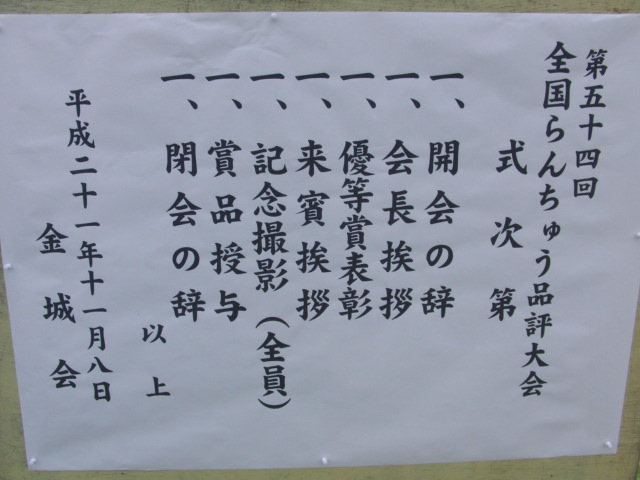 第五十四回
全国らんちゅう品評大会
式次第
一、開会の辞
一、会長挨拶
一、優等賞表彰
一、来賓挨拶
一、記念撮影（全員）
一、賞品授与
一、閉会の辞
以上
平成二十一年十一月八日
金城会